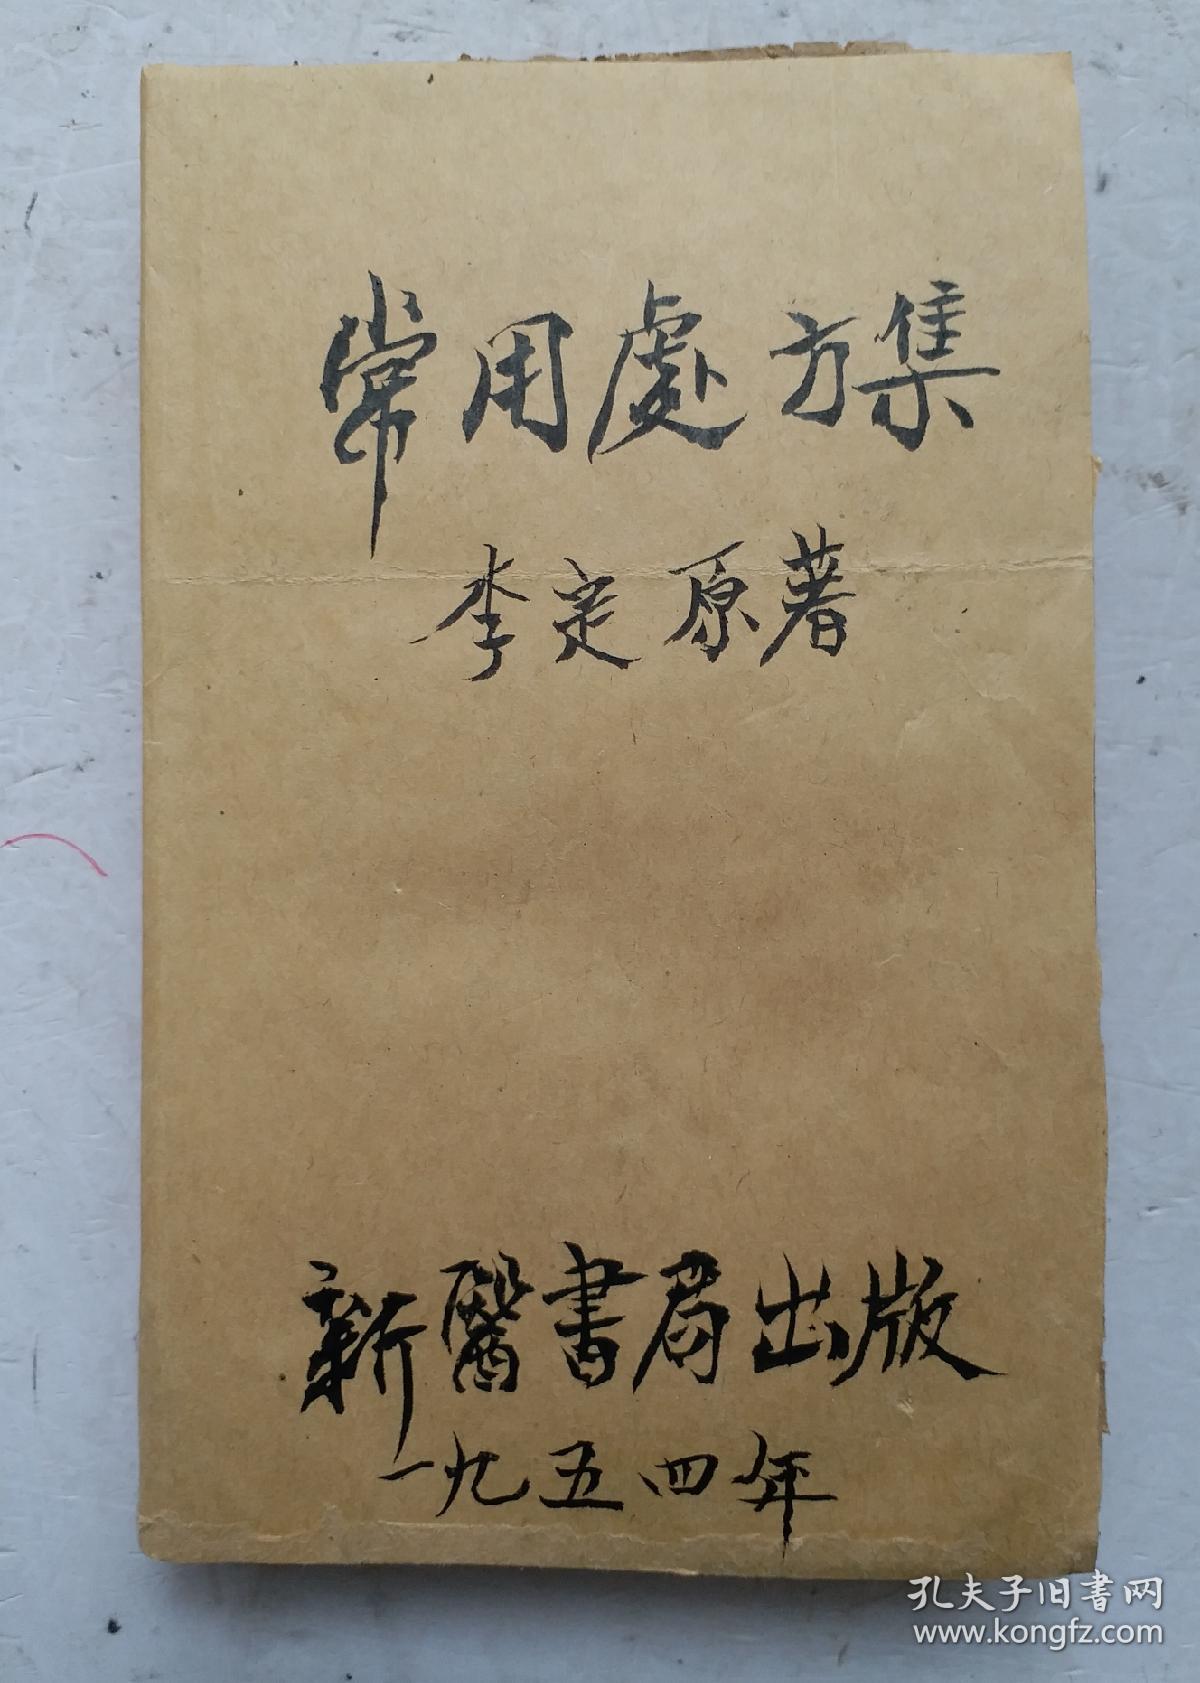 常用處方集
李定原著
新醫書局出版
一九五四年
孔夫子旧书网
www.kongfz.com